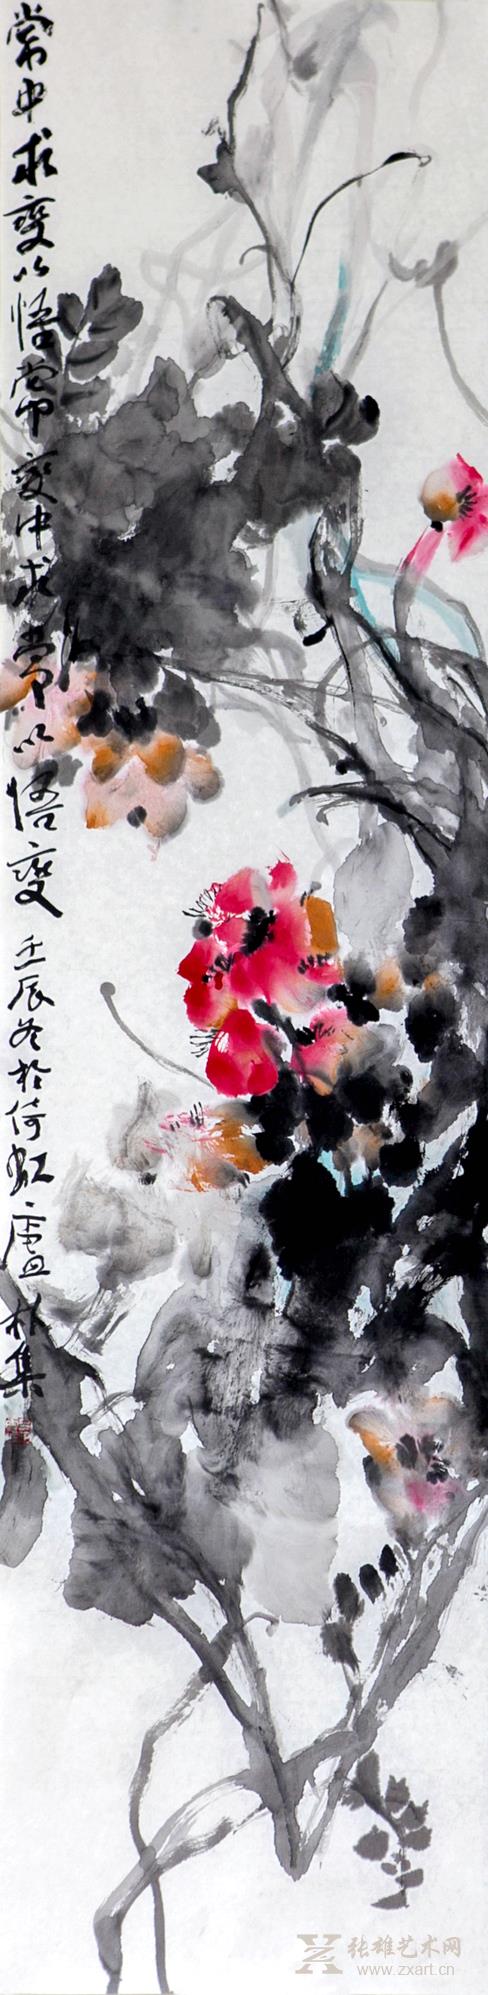 常中求变以悟常变中求常以悟变 壬辰冬於倚虹庐 朴集
张雄艺术网
www.zxart.cn